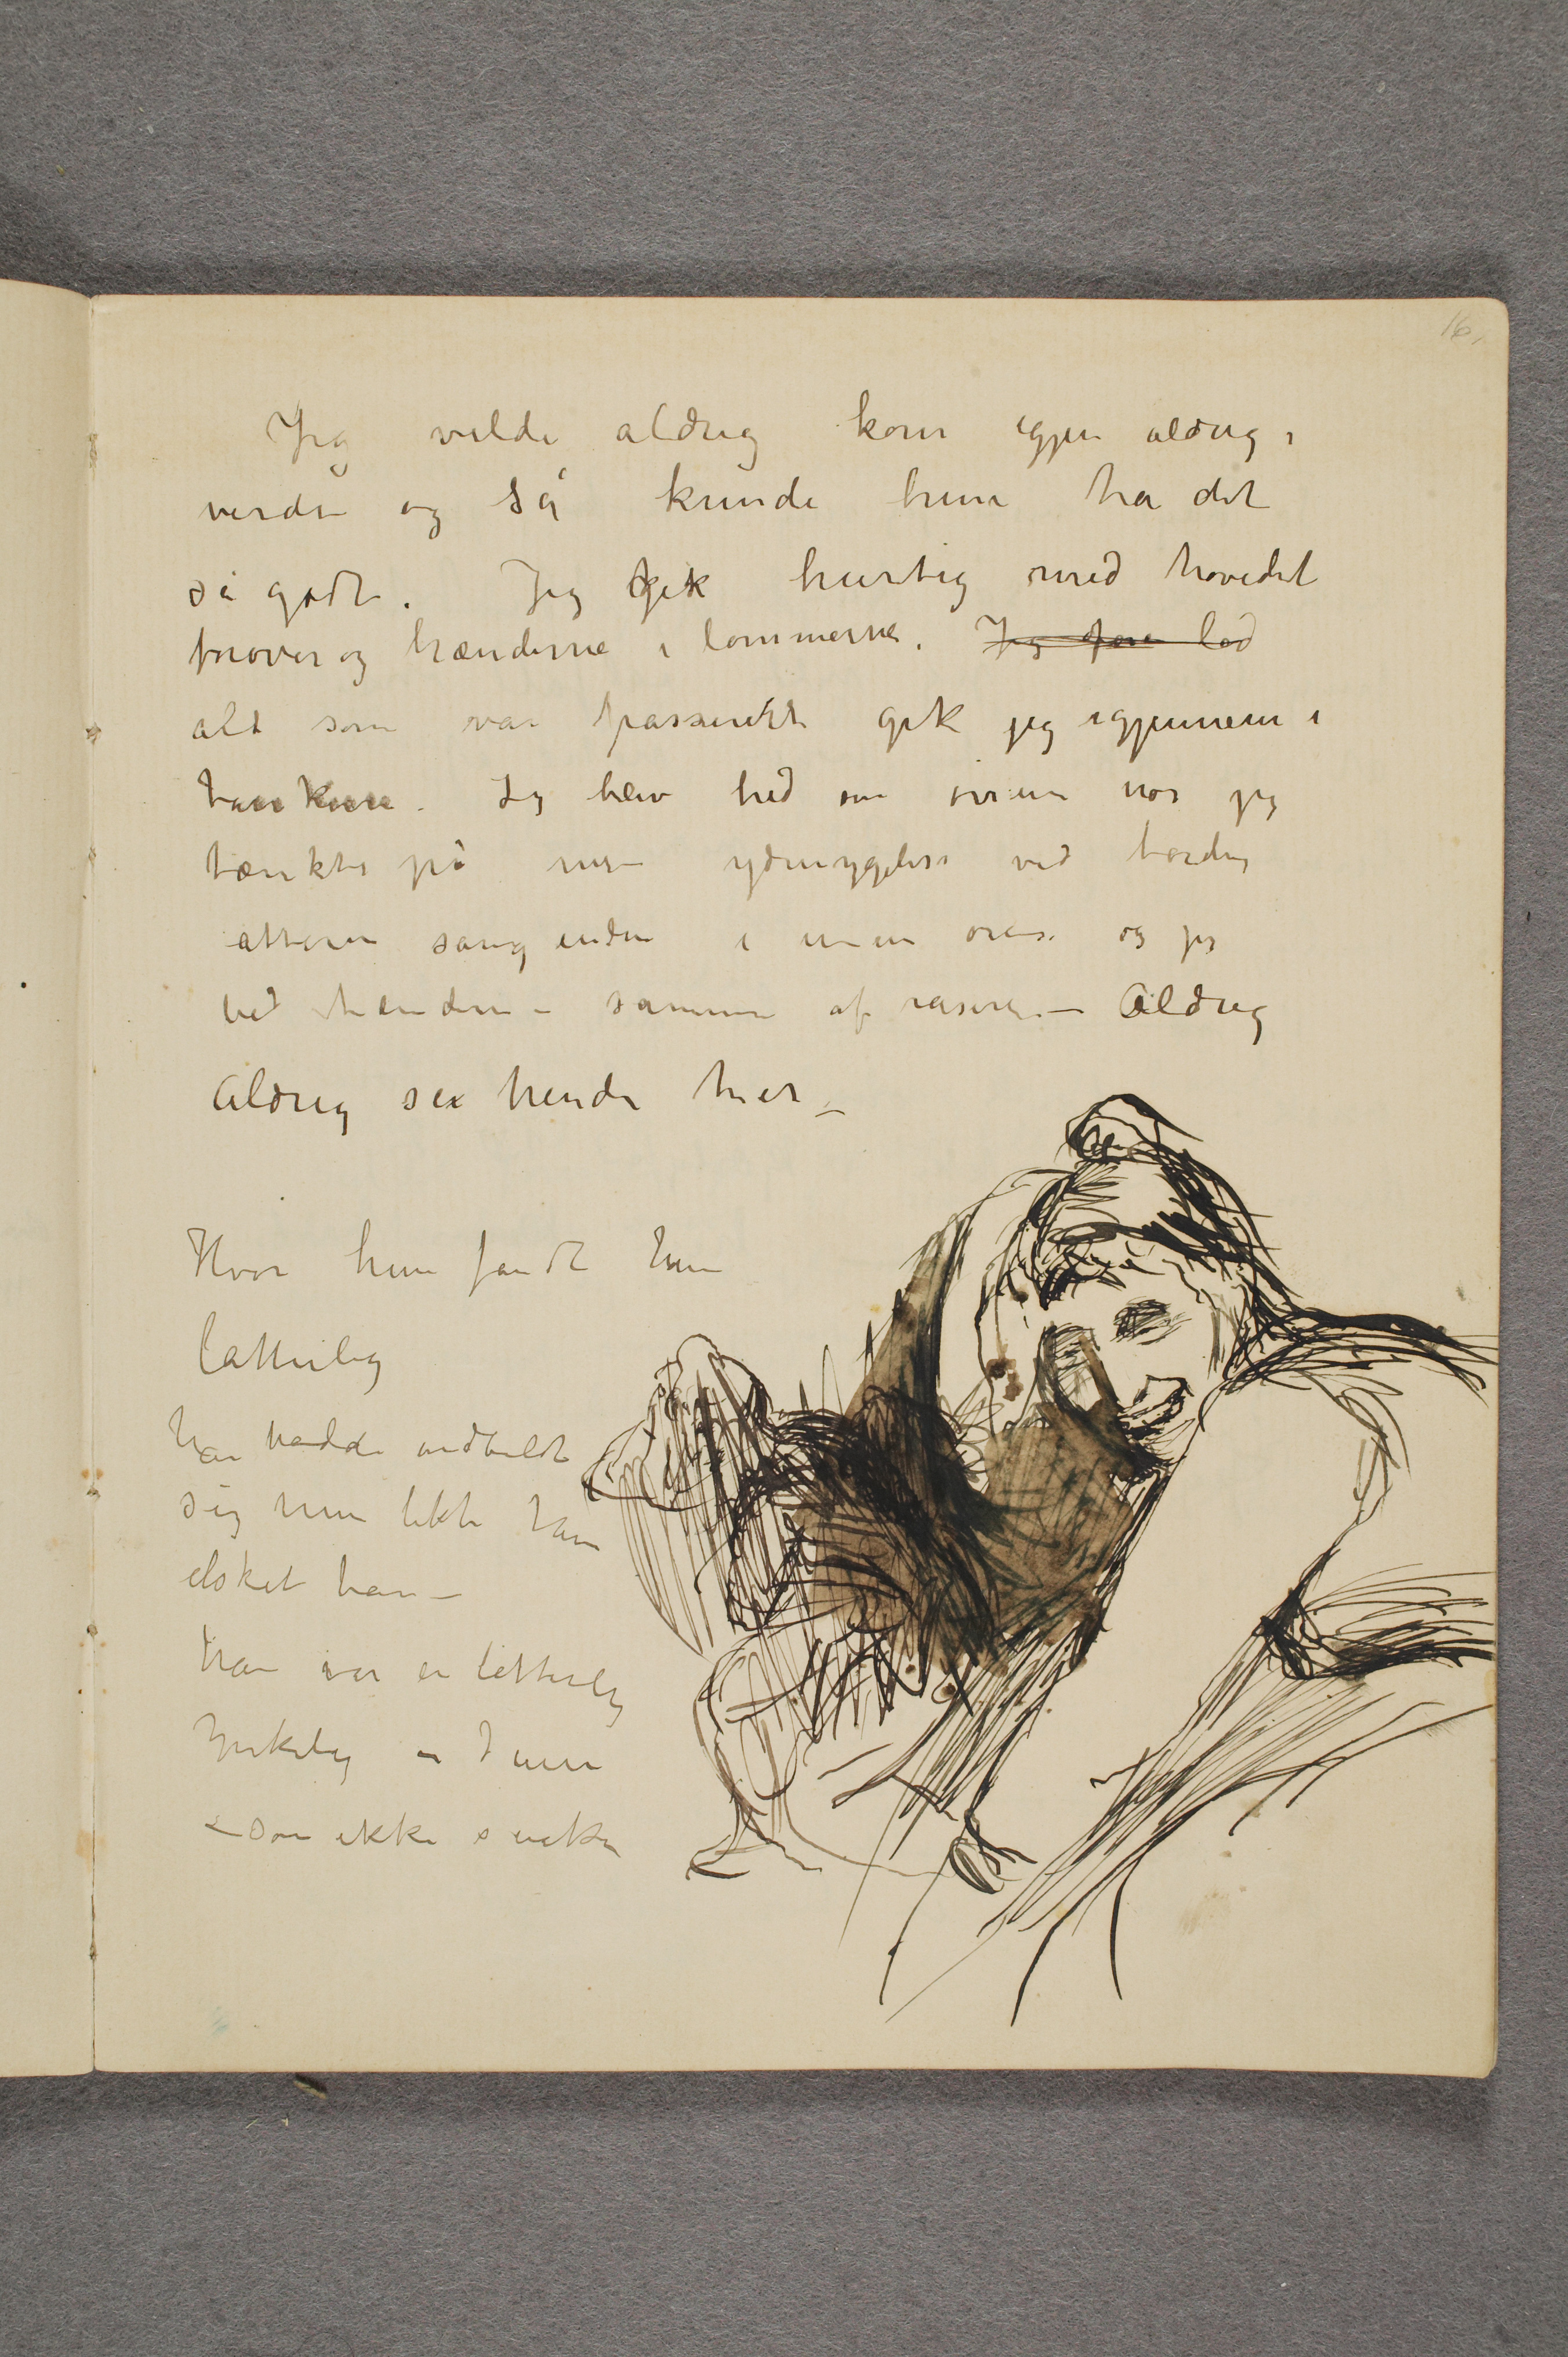 16,
Jeg vilde aldrig kom igjen aldrig i
verden og så kunde hun ha det
så godt. Jeg gik hurtig med hovedet
forover og hænderne i lommerne. Jeg lod
alt som var passeret gik jeg igjennem i
tankene. Jeg blev hed om ørene når jeg
tænkte på min ydmygelse ved bordet
latteren sang enden i mine øren og jeg
bed tænderne sammen af raseri – Aldrig
Aldrig se hende mer –
Hvor hun fandt ham
latterlig
han hadde indbildt
sig hun likte ham
elsket ham –
han var en latterlig
ynkelig en
– som ikke